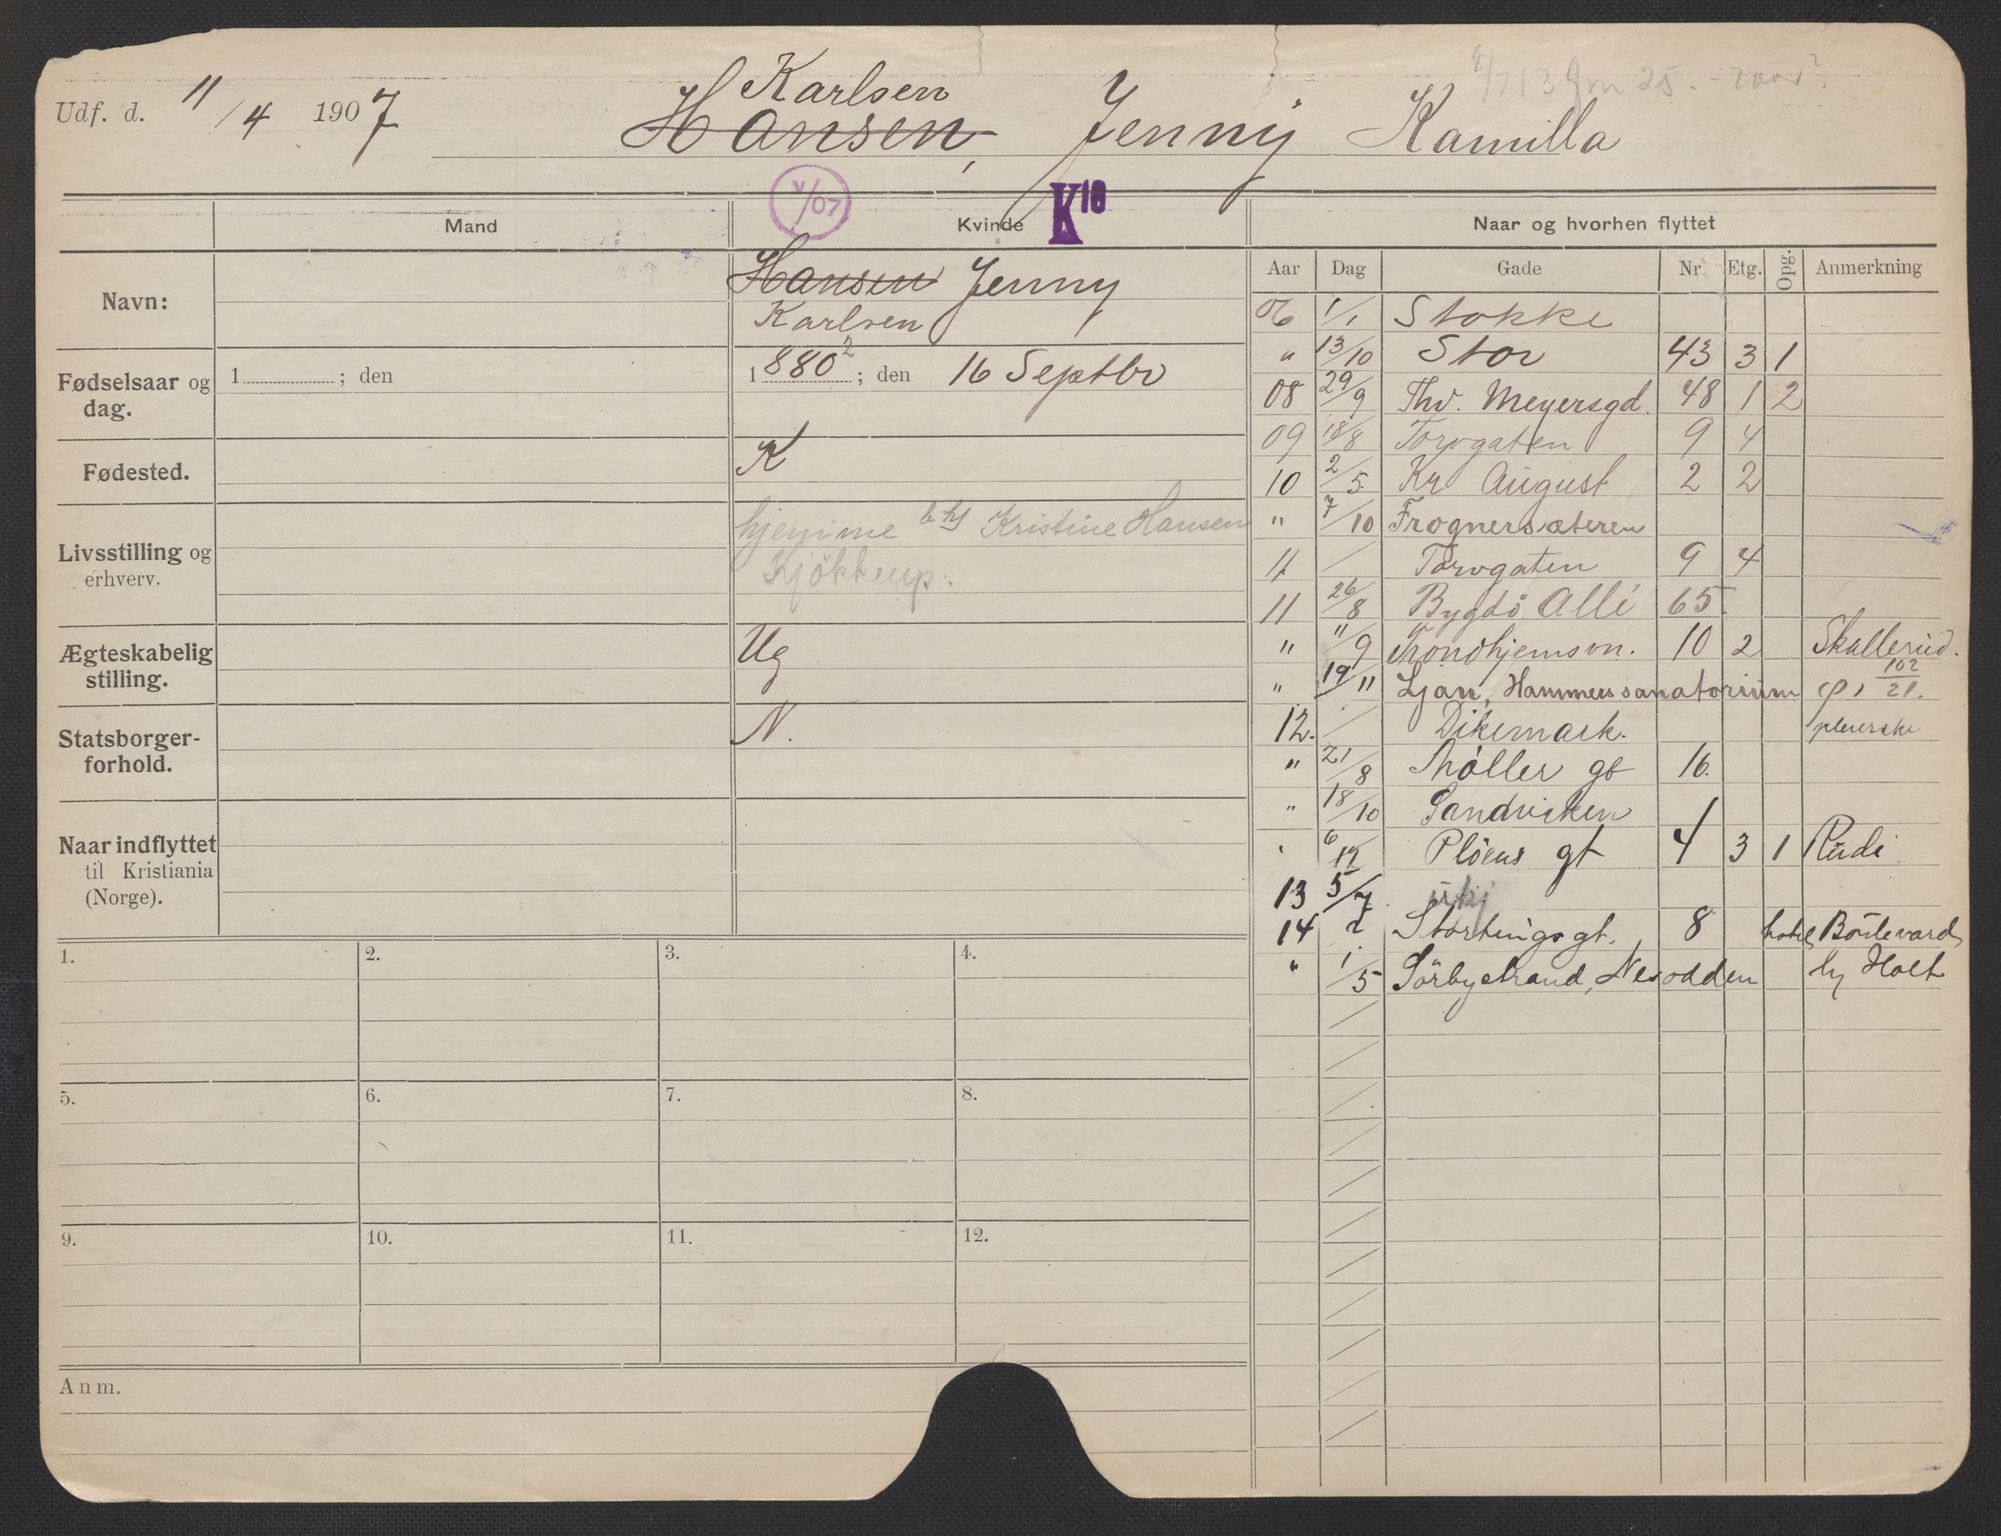 Udf. d. 11/4 1907
Karlsen
Hansen, Jenny Kamilla
V/07
K18
Mand
Kvinde
Naar og hvorhen flyttet
Aar Dag Gade Nr. Etg. Opg. Anmerkning
Navn:
Hansen Jenny
Karlsen
Fødselsaar og
dag.
1 ; den
1 880 2 ; den 16 Septbr
Fødested.
K
Livsstilling og
erhverv.
hjemme Kristine Hansen
Kjökkenp.
Ægteskabelig
stilling.
Ug
Statsborger-
forhold.
N.
Naar indflyttet
til Kristiania
(Norge).
06 1/1 Stokke
" 13/10 Stor 43 3 1
08 29/9 Thv. Meyersgd. 48 1 2
09 18/8 Torvgaten 9 4
10 2/5 Kr August 2 2
" 7/10 Frognersæteren
11 / Torvgaten 9 4
11 26/8 Bygdö Allé 65
" 11/9 Trondhjemsvn. 10 2 Skallerud.
" 19/11 Ljan, Hammers sanatorium 102/21.
12. / Dikemark. pleierske
" 21/8 Møller gt 16.
" 18/10 Sandviken
" 6/12 Pløens gt 4 3 1 Rudi
13 5/7 ukj
14 / Stortings gt. 8 hotel Boulevard
" 1/5 Sörbystrand, Nesodden by Holt
1. 2. 3. 4.
5. 6. 7. 8.
9. 10. 11. 12.
Anm.